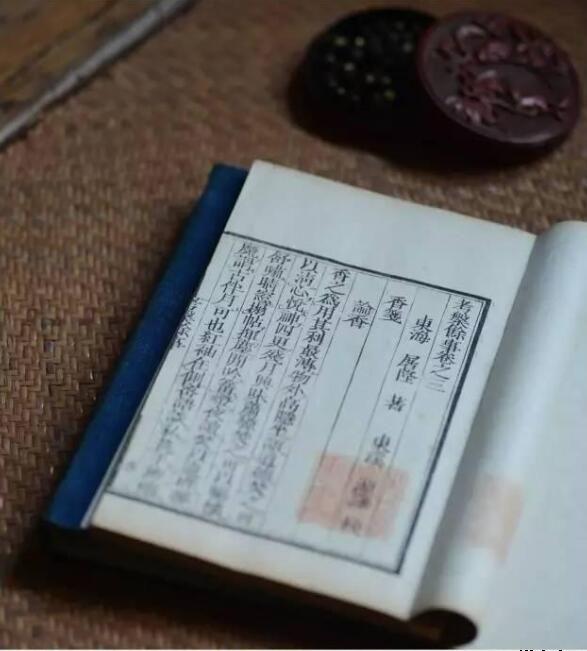 考槃餘事卷之三
東海 屠隆 著 東 校
香箋
論香
香之爲用其利最溥物外高隱坐語道德焚之可
以清心悅神四更殘月興味蕭騷焚之可以暢懷
舒嘯晴窓搨帖揮麈閒吟篝燈夜讀焚以遠辟睡
魔謂古伴月可也紅袖在側密語談